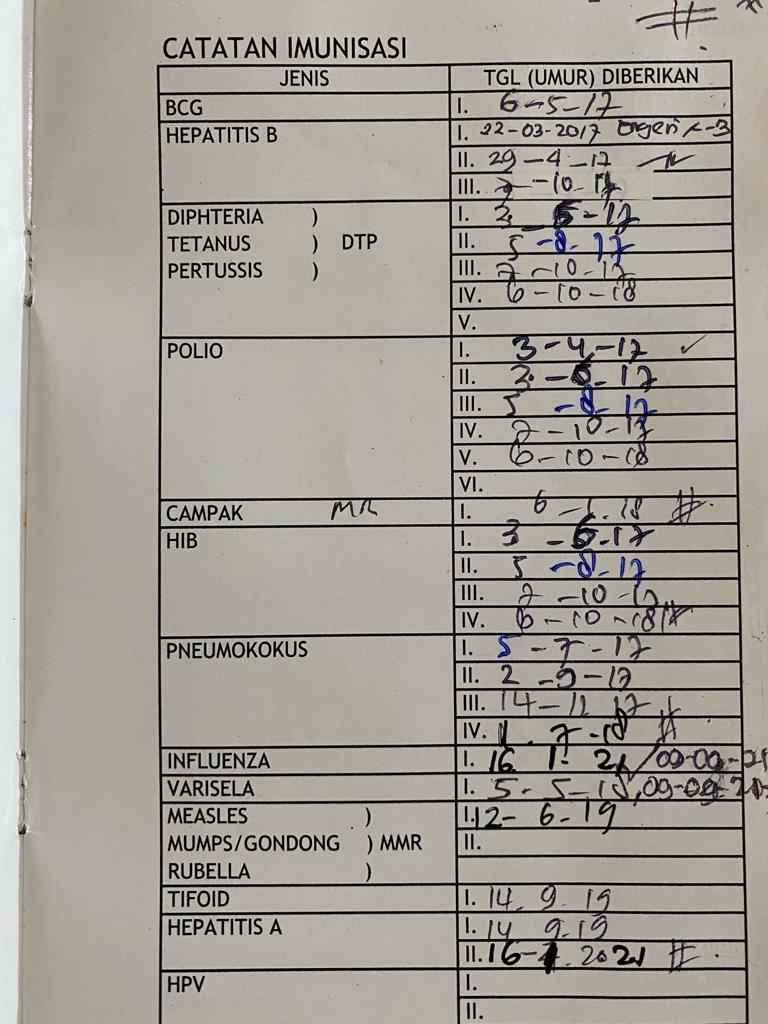 CATATAN IMUNISASI
JENIS TGL (UMUR) DIBERIKAN
BCG I. 6-5-17
HEPATITIS B I. 22-03-2017
II. 29-4-17
III. 7-10-17
DIPHTERIA ) I. 3-6-17
TETANUS ) DTP II. 5-8-17
PERTUSSIS ) III. 7-10-17
IV. 6-10-18
V.
POLIO I. 3-4-17 ✓
II. 3-6-17
III. 5-8-17
IV. 7-10-17
V. 6-10-18
VI.
CAMPAK MR I. 6-1-18
HIB I. 3-6-17
II. 5-8-17
III. 7-10-17
IV. 6-10-18
PNEUMOKOKUS I. 5-7-17
II. 2-9-17
III. 14-11-17
IV. 1-7-18
INFLUENZA I. 16 1- 21
VARISELA I. 5-5-18,
MEASLES ) I. 12-6-19
MUMPS/GONDONG ) MMR II.
RUBELLA )
TIFOID I. 14. 9. 19
HEPATITIS A I. 14 9-19
II. 16-1.2021
HPV I.
II.